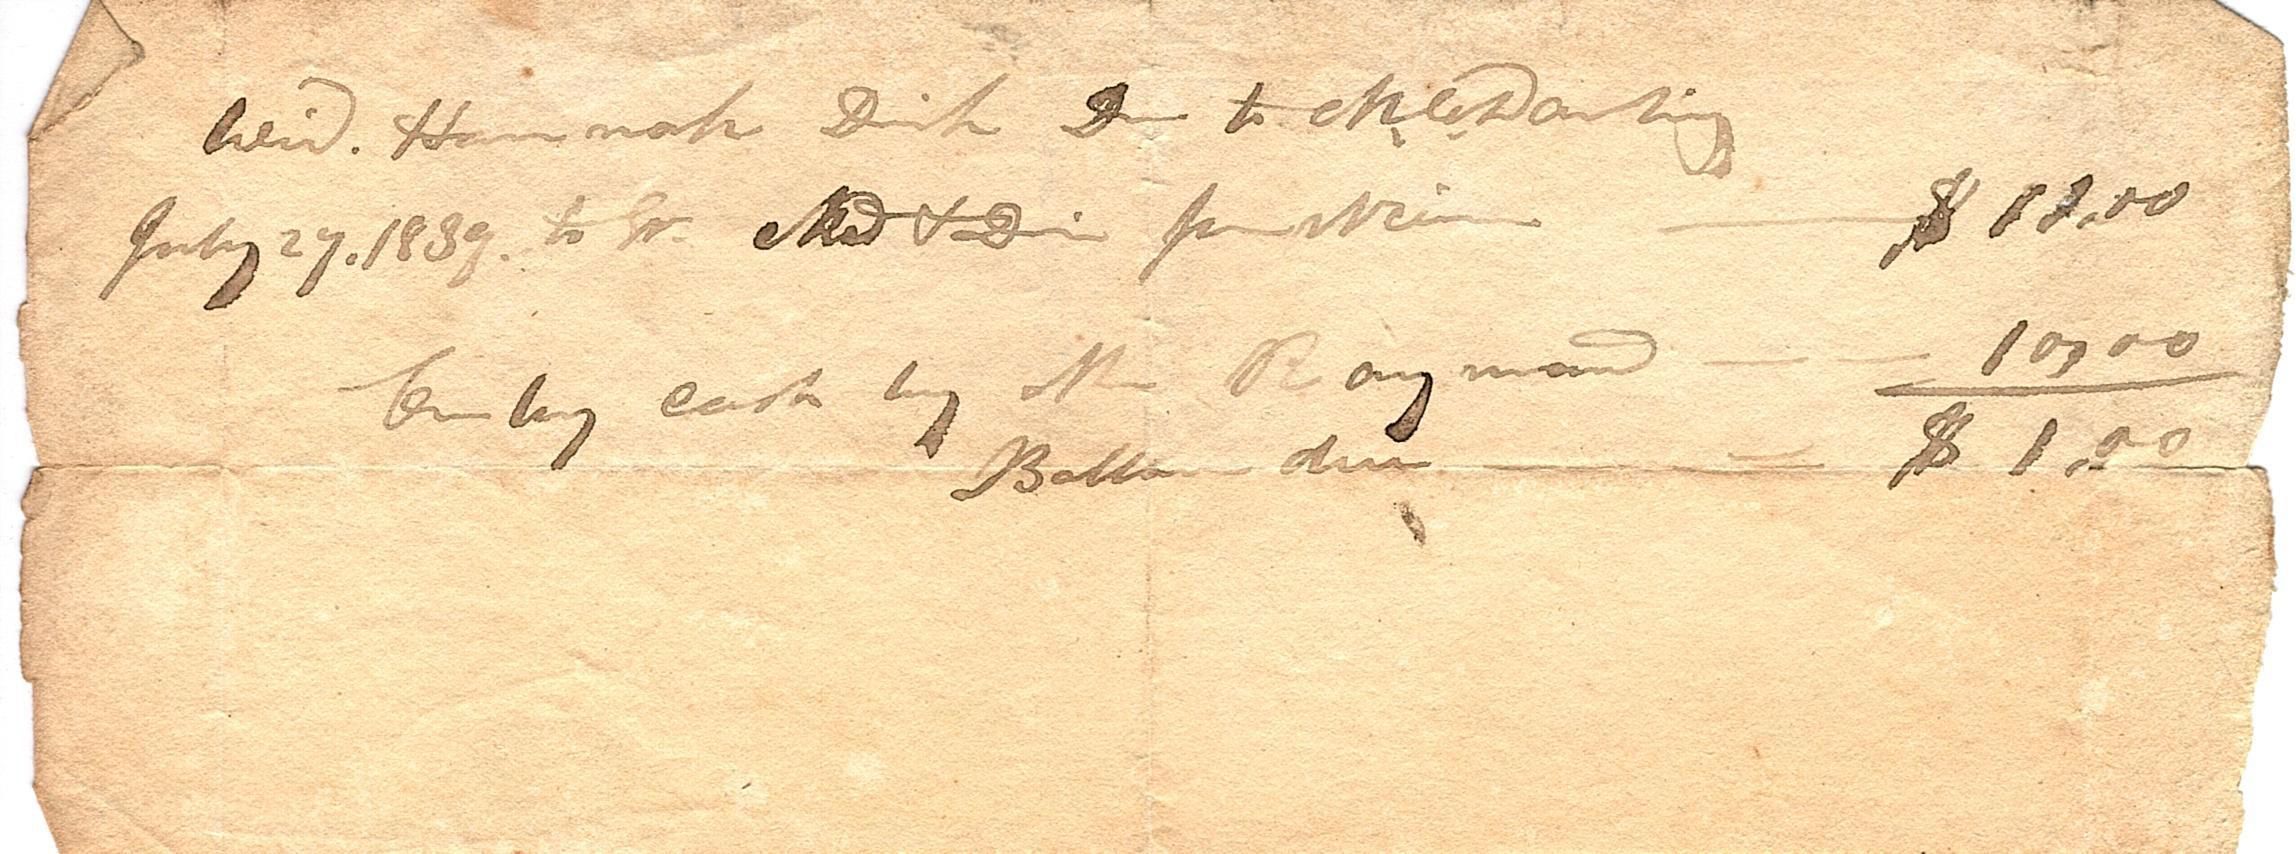 Wid. Hannah Dick Dr to M. C. Darling
July 27. 1839. to Med & Di $ 11.00
Cr by cash by Mr Raymond 10,00
Ballan due $ 1.00